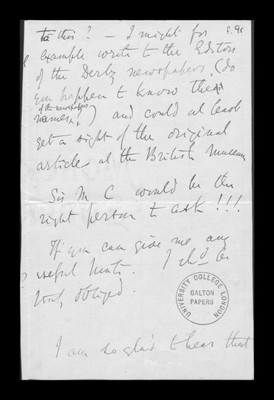 to this? — I might for
example write to the Editors
of the Derby newspapers. (do
you happen to know their
of the newspapers
names?) and could at least
get a sight of the original
article at the British Museum
Sir M C would be the
right person to ask!!!
If you can give me any
useful hints. I shd be
much obliged.
UNIVERSITY COLLEGE LONDON
GALTON
PAPERS
I am so glad to hear that